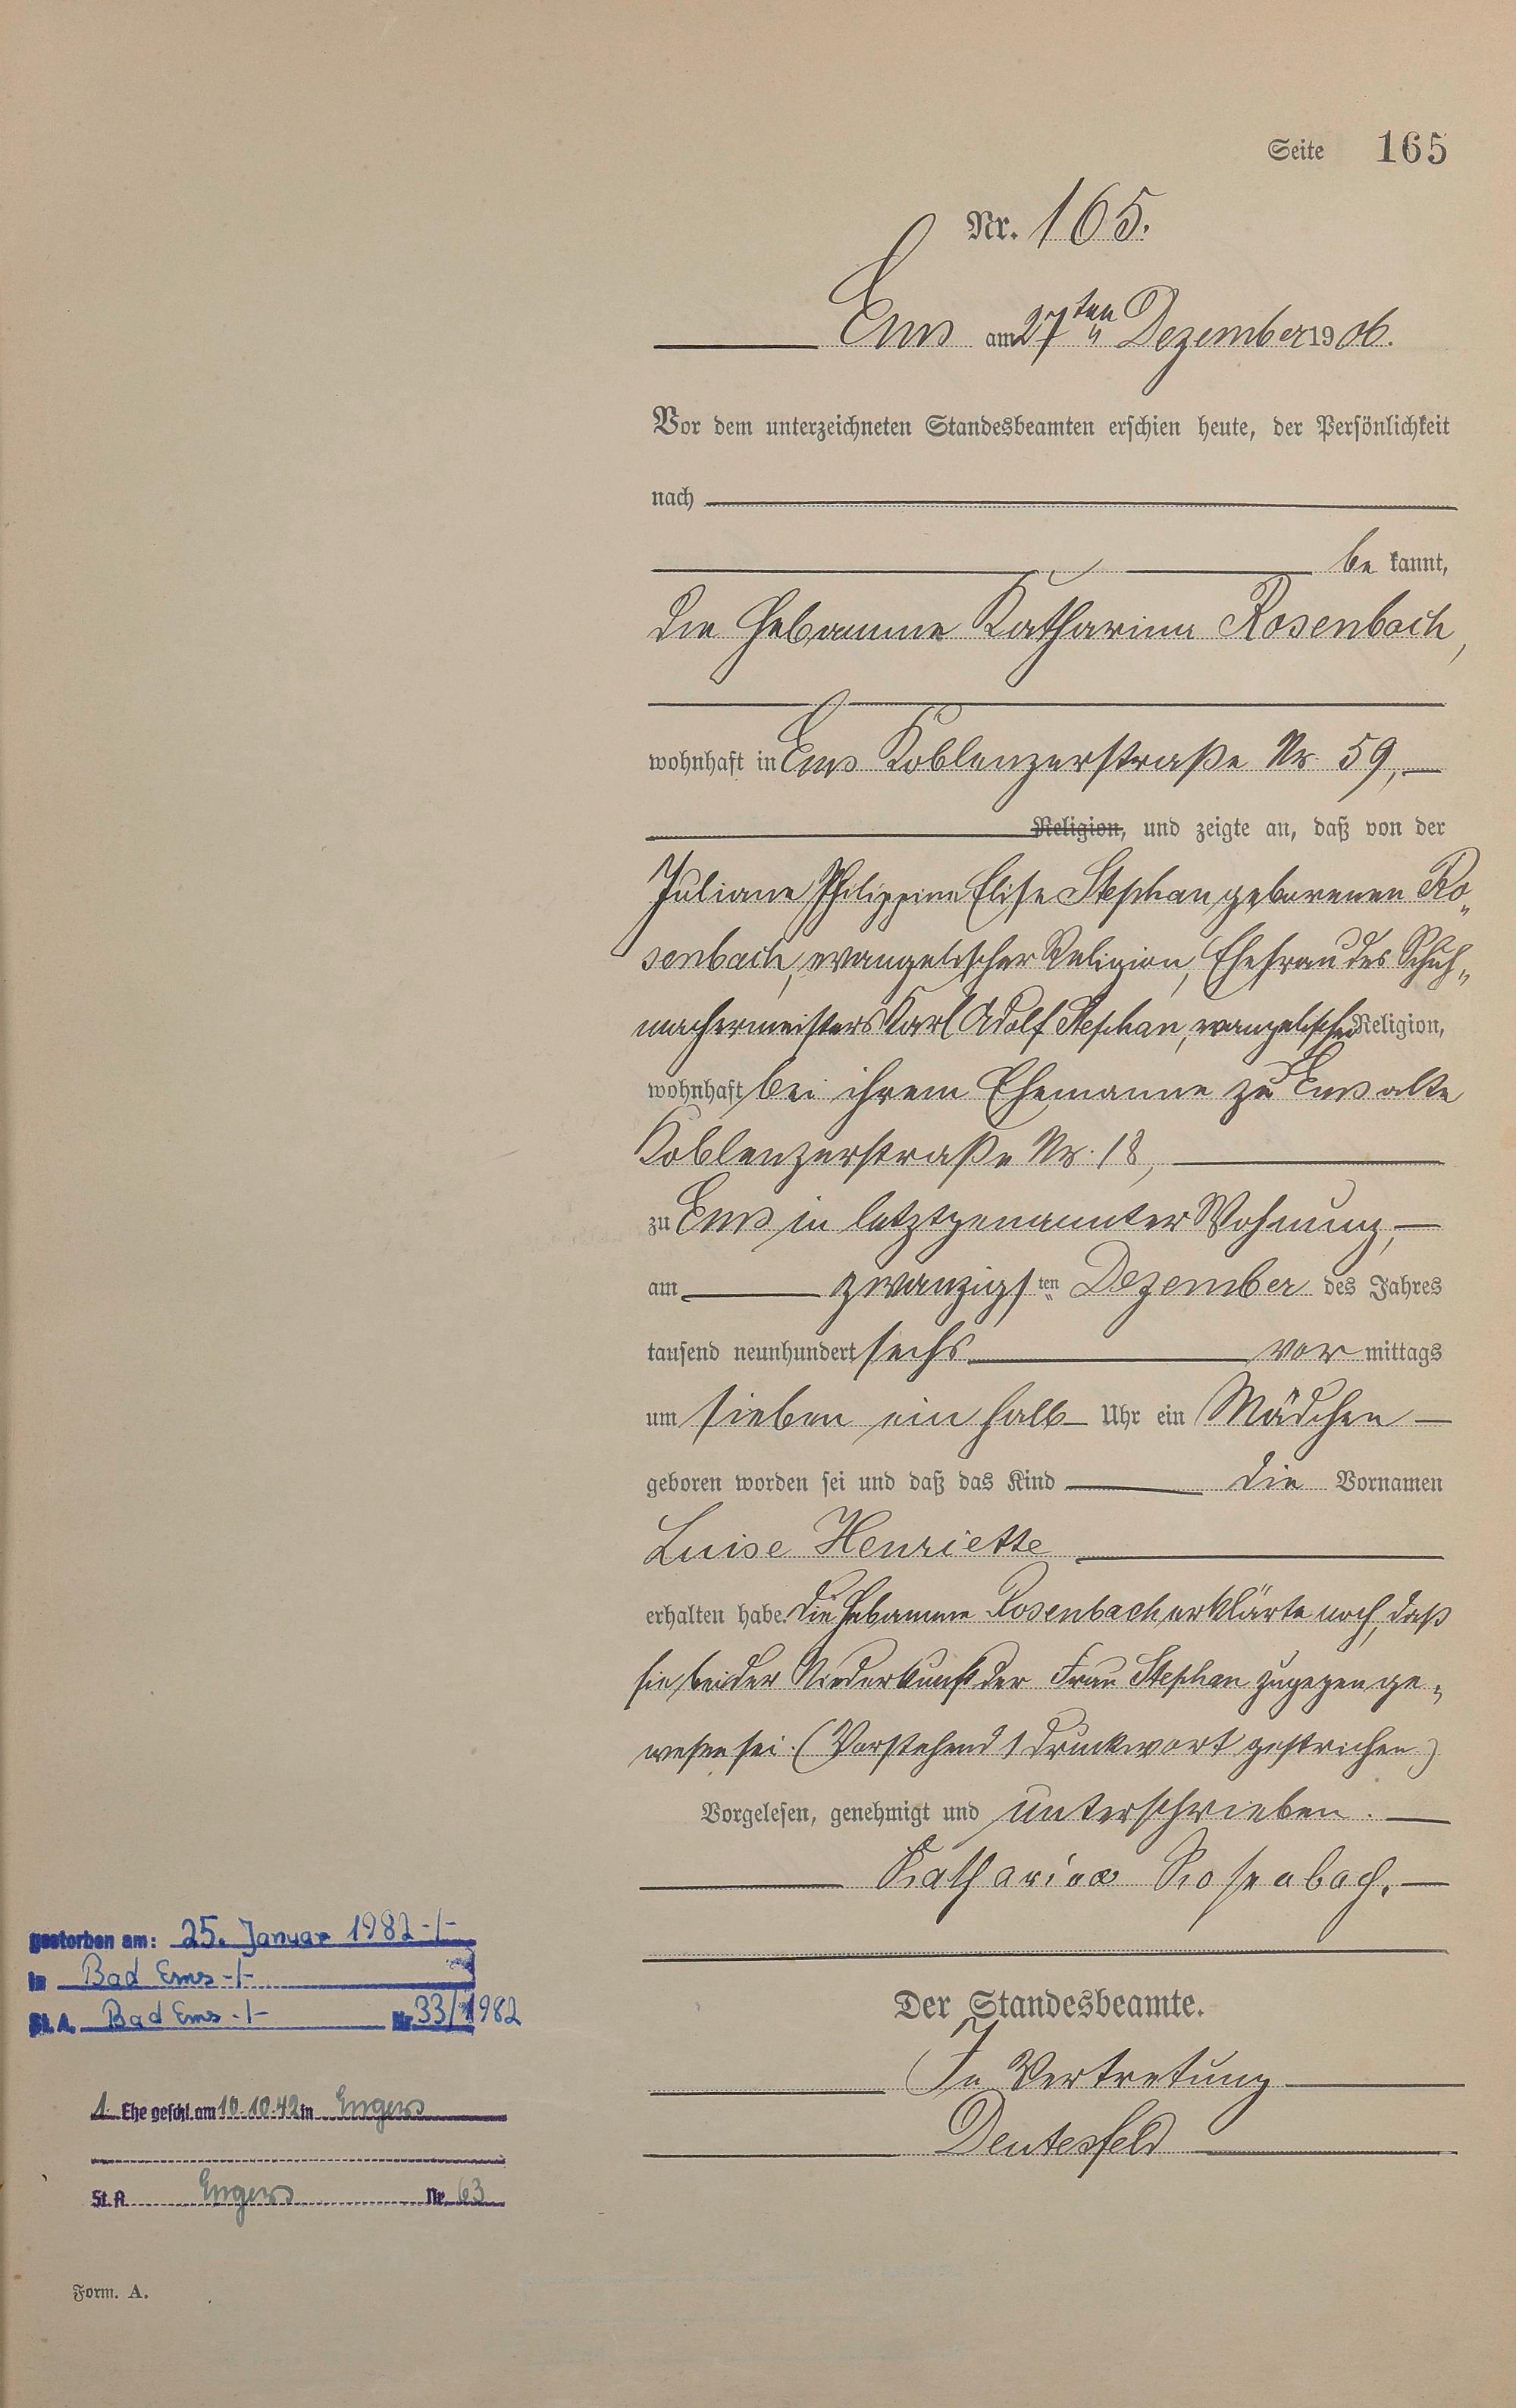 Seite 165
Nr. 165.
Ems am 27ten Dezember 1906.
Vor dem unterzeichneten Standesbeamten erschien heute, der Persönlichkeit
nach
be kannt,
die Hebamme Katharina Rosenbach,
wohnhaft in Ems Koblenzerstraße Nr. 59,
Religion, und zeigte an, daß von der
Juliane Philippine Elise Stephan, geborenen Ro„
senbach, evangelischer Religion, Ehefrau des Schuh„
machermeisters Karl Adolf Stephan, evangelischer Religion,
wohnhaft bei ihrem Ehemanne zu Ems alte
Koblenzerstraße Nr. 18,
zu Ems in letztgenannter Wohnung,
am zwanzigsten Dezember des Jahres
tausend neunhundert sechs vor mittags
um sieben ein halb Uhr ein Mädchen
geboren worden sei und daß das Kind die Vornamen
Luise Henriette
erhalten habe. Die Hebamme Rosenbach erklärte noch, daß
sie bei der Niederkunft der Frau Stephan zugegen ge„
wesen sei. (Vorstehend 1 Druckwort gestrichen)
Vorgelesen, genehmigt und unterschrieben.
Katharina Rosenbach.
Der Standesbeamte.
In Vertretung
Deutesfeld
gestorben am: 25. Januar 1982 -/-
in Bad Ems -/-
St. A. Bad Ems -/- Nr. 33/1982
1. Ehe geschl. am 10.10.42 in Engers
St. A. Engers Nr. 63
Form. A.